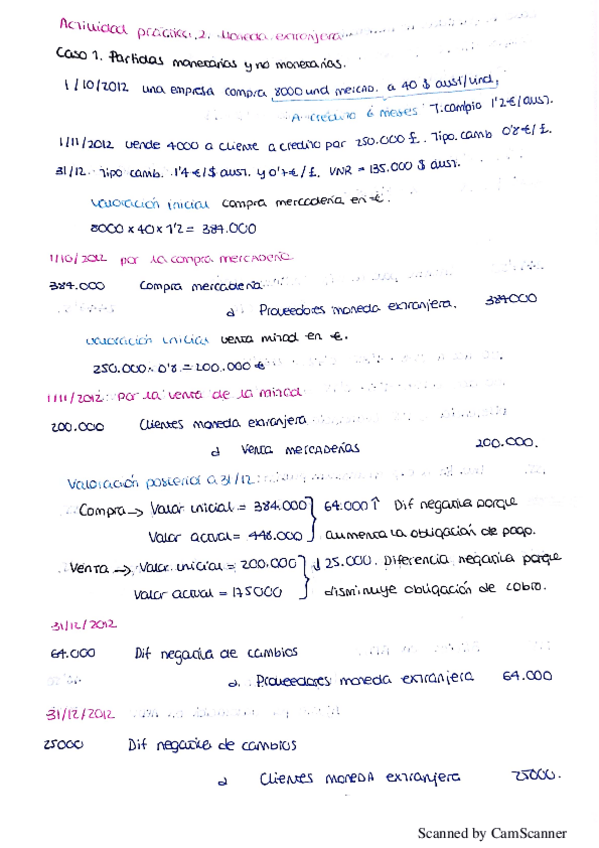 Actividad práctica.2. Moneda extranjera
Caso 1. Partidas monetarias y no monetarias.
1/10/2012 una empresa compra 8000 und mercad. a 40 $ aust/und,
A crédito 6 meses T.cambio 1'2€/aust.
1/11/2012 vende 4000 a cliente a crédito por 250.000 £. Tipo. camb 0'8€/£.
31/12. Tipo camb. 1'4€/$ aust. y 0'7€/£. VNR = 135.000 $ aust.
Valoración inicial compra mercadería en €.
8000 x 40 x 1'2 = 384.000
1/10/2012 por la compra mercadería
384.000 Compra mercadería
a Proveedores moneda extranjera. 384000
Valoración inicial venta mitad en €.
250.000 . 0'8 = 200.000 €
1/11/2012: por la venta de la mitad
200.000 Clientes moneda extranjera
a Venta mercaderías 200.000.
Valoración posterior a 31/12:
Compra → Valor inicial = 384.000 } 64.000 ↑ Dif negativa porque
Valor actual = 448.000 aumenta la obligación de pago.
Venta → Valor inicial = 200.000 } ↓ 25.000. Diferencia negativa porque
Valor actual = 175000 disminuye obligación de cobro.
31/12/2012
64.000 Dif negativa de cambios
a. Proveedores moneda extranjera 64.000
31/12/2012
25000 Dif negativa de cambios
a Clientes moneda extranjera 25000.
Scanned by CamScanner